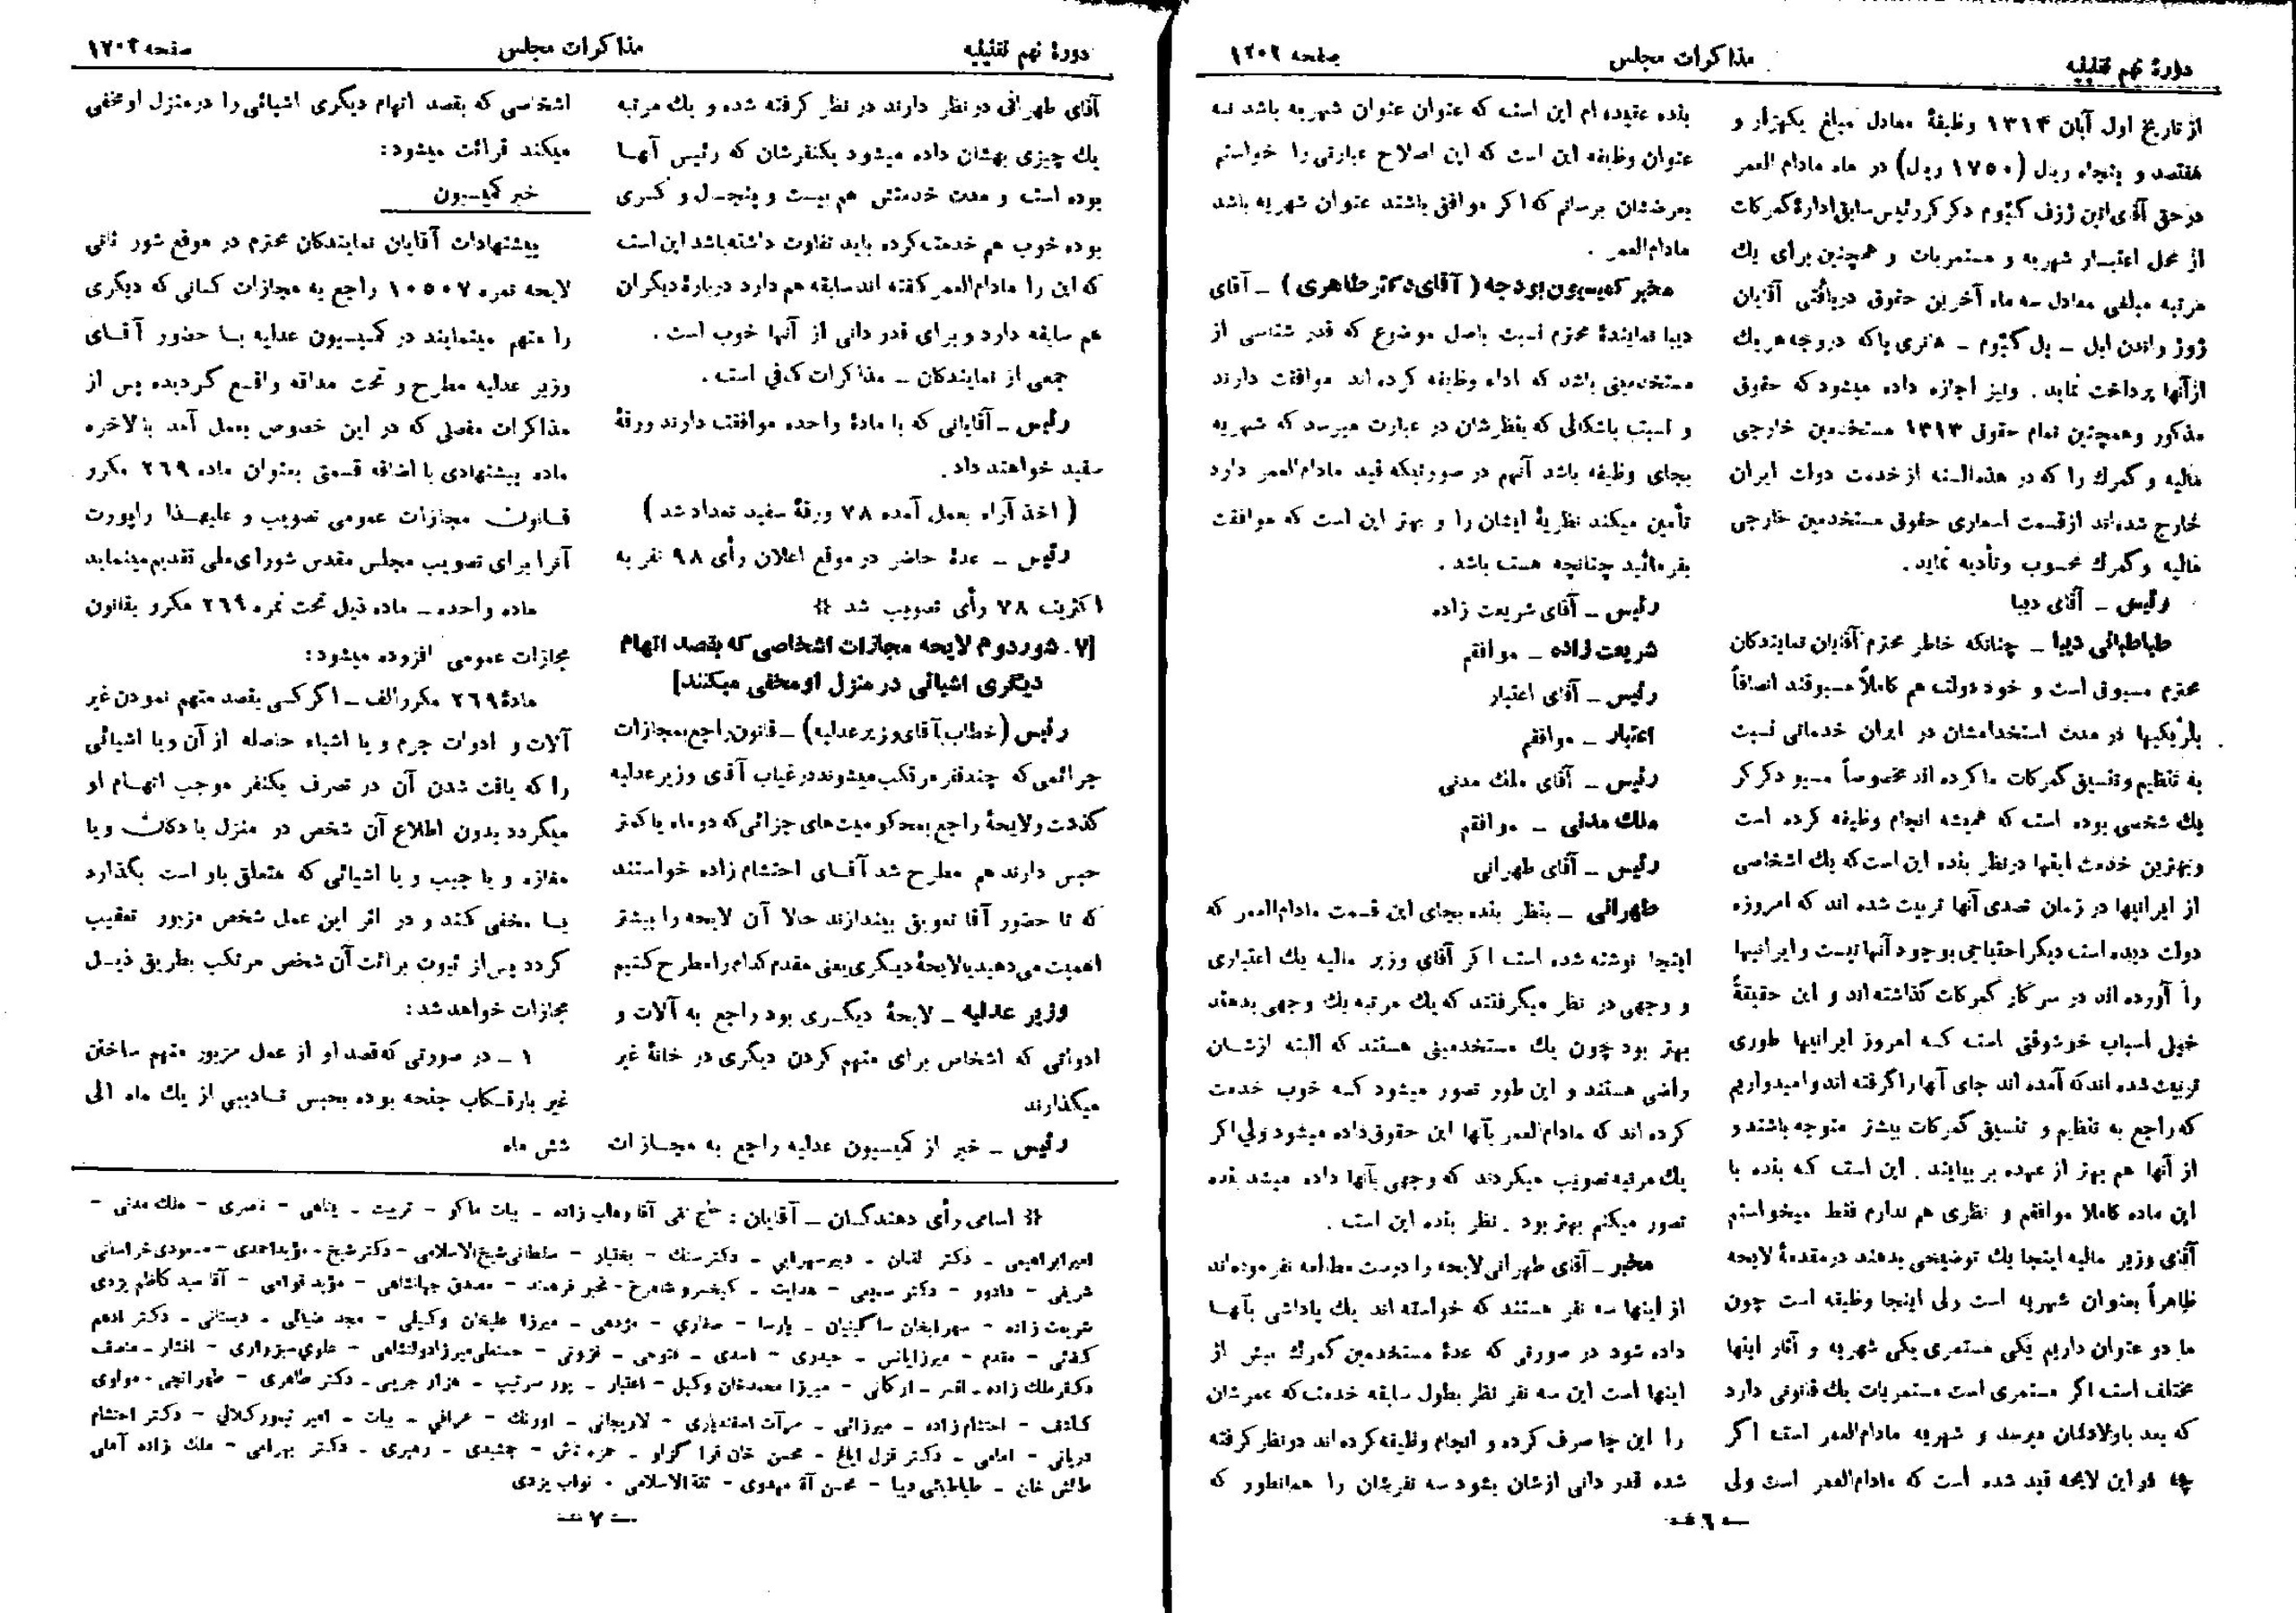 دورهٔ نهم تقنینیه
مذاکرات مجلس
صفحه ۱۷۰۲
از تاریخ اول آبان ۱۳۱۴ وظیفهٔ معادل مبلغ یکهزار و
هفتصد و پنجاه ریال (۱۷۵۰ ریال) در ماه مادام العمر
در حق آقای ژوزف گیوم دکرکر رئیس سابق ادارهٔ گمرکات
از محل اعتبار شهریه و مستمریات و همچنین برای یك
مرتبه مبلغی معادل سه ماه آخرین حقوق دریافتی آقایان
ژوز واندن ابل ـ پل گیوم ـ هانری پاکه در وجه هر یك
از آنها پرداخت نماید . و نیز اجازه داده میشود که حقوق
مذکور و همچنین تمام حقوق ۱۳۱۳ مستخدمین خارجی
مالیه و گمرك را که در هذه السنه از خدمت دولت ایران
خارج شده‌اند از قسمت اسعاری حقوق مستخدمین خارجی
مالیه و گمرك محسوب و تأدیه نماید .
رئیس ـ آقای دیبا
طباطبائی دیبا ـ چنانکه خاطر محترم آقایان نمایندگان
محترم مسبوق است و خود دولت هم کاملاً مسبوقند انصافاً
بلژیکیها در مدت استخدامشان در ایران خدماتی نسبت
به تنظیم و تنسیق گمرکات ما کرده اند مخصوصاً مسیو دکرکر
یك شخصی بوده است که همیشه انجام وظیفه کرده است
و بهترین خدمت اینها در نظر بنده این است که یك اشخاصی
از ایرانیها در زمان تصدی آنها تربیت شده اند که امروزه
دولت دیده است دیگر احتیاجی بوجود آنها نیست و ایرانیها
را آورده اند در سر کار گمرکات گذاشته اند و این حقیقةً
خیلی اسباب خوشوقتی است که امروز ایرانیها طوری
تربیت شده اند که آمده اند جای آنها را گرفته اند و امیدواریم
که راجع به تنظیم و تنسیق گمرکات بیشتر متوجه باشند و
از آنها هم بهتر از عهده بر بیایند . این است که بنده با
این ماده کاملا موافقم و نظری هم ندارم فقط میخواستم
آقای وزیر مالیه اینجا یك توضیحی بدهند در مقدمهٔ لایحه
ظاهراً بعنوان شهریه است ولی اینجا وظیفه است چون
ما دو عنوان داریم یکی مستمری یکی شهریه و آثار اینها
مختلف است اگر مستمری است مستمریات یك قانونی دارد
که بعد باولادشان میرسد و شهریه مادام‌العمر است اگر
چه در این لایحه قید شده است که مادام‌العمر است ولی
بنده عقیده ام این است که عنوان عنوان شهریه باشد نه
عنوان وظیفه این است که این اصلاح عبارتی را خواستم
بعرضشان برسانم که اگر موافق باشند عنوان شهریه باشد
مادام‌العمر .
مخبر کمیسیون بودجه ( آقای دکتر طاهری ) ـ آقای
دیبا نمایندهٔ محترم نسبت باصل موضوع که قدر شناسی از
مستخدمینی باشد که اداء وظیفه کرده اند موافقت دارند
و نسبت باشکالی که بنظرشان در عبارت میرسد که شهریه
بجای وظیفه باشد آنهم در صورتیکه قید مادام‌العمر دارد
تأمین میکند نظریهٔ ایشان را و بهتر این است که موافقت
بفرمائید چنانچه هست باشد .
رئیس ـ آقای شریعت زاده
شریعت زاده ـ موافقم
رئیس ـ آقای اعتبار
اعتبار ـ موافقم
رئیس ـ آقای ملك مدنی
ملك مدنی ـ موافقم
رئیس ـ آقای طهرانی
طهرانی ـ بنظر بنده بجای این قسمت مادام‌العمر که
اینجا نوشته شده است اگر آقای وزیر مالیه یك اعتباری
و وجهی در نظر میگرفتند که یك مرتبه یك وجهی بدهند
بهتر بود چون یك مستخدمینی هستند که البته ازشان
راضی هستند و این طور تصور میشود که خوب خدمت
کرده اند که مادام‌العمر بآنها این حقوق داده میشود ولی اگر
یك مرتبه تصویب میکردند که وجهی بآنها داده میشد بنده
تصور میکنم بهتر بود . نظر بنده این است .
مخبر ـ آقای طهرانی لایحه را درست مطالعه نفرموده‌اند
از اینها سه نفر هستند که خواسته اند یك پاداشی بآنها
داده شود در صورتی که عدهٔ مستخدمین گمرك بیش از
اینها است این سه نفر نظر بطول سابقه خدمت که عمرشان
را این جا صرف کرده و انجام وظیفه کرده اند در نظر گرفته
شده قدر دانی ازشان بشود سه نفرشان را همانطور که
ـ ۶ ـ
دورهٔ نهم تقنینیه
مذاکرات مجلس
صفحه ۱۷۰۳
آقای طهرانی در نظر دارند در نظر گرفته شده و یك مرتبه
یك چیزی بهشان داده میشود یکنفرشان که رئیس آنها
بوده است و مدت خدمتش هم بیست و پنجسال و کسری
بوده خوب هم خدمت کرده باید تفاوت داشته باشد این است
که این را مادام‌العمر گفته اند سابقه هم دارد دربارهٔ دیگران
هم سابقه دارد و برای قدر دانی از آنها خوب است .
جمعی از نمایندگان ـ مذاکرات کافی است .
رئیس ـ آقایانی که با مادهٔ واحده موافقت دارند ورقهٔ
سفید خواهند داد .
( اخذ آراء بعمل آمده ۷۸ ورقهٔ سفید تعداد شد )
رئیس ـ عدهٔ حاضر در موقع اعلان رأی ۹۸ نفر به
اکثریت ۷۸ رأی تصویب شد #
[۷ . شور دوم لایحه مجازات اشخاصی که بقصد اتهام
دیگری اشیائی در منزل او مخفی میکنند]
رئیس (خطاب بآقای وزیر عدلیه) ـ قانون راجع بمجازات
جرائمی که چند نفر مرتکب میشوند در غیاب آقای وزیر عدلیه
گذشت و لایحهٔ راجع بمحکومیت‌های جزائی که دو ماه یا کمتر
حبس دارند هم مطرح شد آقای احتشام زاده خواستند
که تا حضور آقا تعویق بیندازند حالا آن لایحه را بیشتر
اهمیت می دهید یا لایحهٔ دیگری یعنی مقدم کدام را مطرح کنیم
وزیر عدلیه ـ لایحهٔ دیگری بود راجع به آلات و
ادواتی که اشخاص برای متهم کردن دیگری در خانهٔ غیر
میگذارند
رئیس ـ خبر از کمیسیون عدلیه راجع به مجازات
اشخاصی که بقصد اتهام دیگری اشیائی را در منزل او مخفی
میکند قرائت میشود:
خبر کمیسیون
پیشنهادات آقایان نمایندگان محترم در موقع شور ثانی
لایحه نمره ۱۰۵۰۷ راجع به مجازات کسانی که دیگری
را متهم مینمایند در کمیسیون عدلیه با حضور آقای
وزیر عدلیه مطرح و تحت مداقه واقع گردیده پس از
مذاکرات مفصلی که در این خصوص بعمل آمد بالاخره
ماده پیشنهادی با اضافه قسمتی بعنوان ماده ۲۶۹ مکرر
قانون مجازات عمومی تصویب و علیهذا راپورت
آنرا برای تصویب مجلس مقدس شورای ملی تقدیم مینماید
ماده واحده ـ ماده ذیل تحت نمره ۲۶۹ مکرر بقانون
مجازات عمومی افزوده میشود:
مادهٔ ۲۶۹ مکرر الف ـ اگر کسی بقصد متهم نمودن غیر
آلات و ادوات جرم و یا اشیاء حاصله از آن و یا اشیائی
را که یافت شدن آن در تصرف یکنفر موجب اتهام او
میگردد بدون اطلاع آن شخص در منزل یا دکان و یا
مغازه و یا جیب و یا اشیائی که متعلق باو است بگذارد
یا مخفی کند و در اثر این عمل شخص مزبور تعقیب
گردد پس از ثبوت برائت آن شخص مرتکب بطریق ذیل
مجازات خواهد شد:
۱ ـ در صورتی که قصد او از عمل مزبور متهم ساختن
غیر بارتکاب جنحه بوده بحبس تادیبی از یك ماه الی
شش ماه
# اسامی رأی دهندگان ـ آقایان : حاج تقی آقا وهاب زاده ـ بیات ماکو ـ تربیت ـ پناهی ـ ناصری ـ ملك مدنی ـ
امیر ابراهیمی ـ دکتر لقمان ـ دبیر سهرابی ـ دکتر سنگ ـ بختیار ـ سلطانی شیخ‌الاسلامی ـ دکتر شیخ ـ مؤید احمدی ـ مسعودی خراسانی
شریفی ـ دادور ـ دکتر سمیعی ـ هدایت ـ کیخسرو شاهرخ ـ مخبر فرهمند ـ مصدق جهانشاهی ـ مؤید قوامی ـ آقا سید کاظم یزدی
شریعت زاده ـ سهراب‌خان ساگینیان ـ پارسا ـ صفاری ـ مژدهی ـ میرزا علیخان وکیلی ـ مجد ضیائی ـ دبستانی ـ دکتر ادهم
کفائی ـ مقدم ـ میرزایانس ـ حیدری ـ اسدی ـ فتوحی ـ قزونی ـ حسنعلی میرزا دولتشاهی ـ علوی سبزواری ـ افشار ـ منصف
دکتر ملك زاده ـ افسر ـ ارگانی ـ میرزا محمد خان وکیل ـ اعتبار ـ پور سرتیپ ـ هزار جریبی ـ دکتر طاهری ـ طهرانچی ـ مولوی
کاشف ـ احتشام زاده ـ میرزائی ـ مرآت اسفندیاری ـ لاریجانی ـ اورنگ ـ عراقی ـ بیات ـ امیر تیمور کلالی ـ دکتر احتشام
دربانی ـ امامی ـ دکتر قزل ایاغ ـ محسن خان قراگزلو ـ حمزه تاش ـ جمشیدی ـ رهبری ـ دکتر بهرامی ـ ملك زاده آملی
طالش خان ـ طباطبائی دیبا ـ محسن آقا مهدوی ـ ثقة الاسلامی ـ نواب یزدی
ـ ۷ ـ